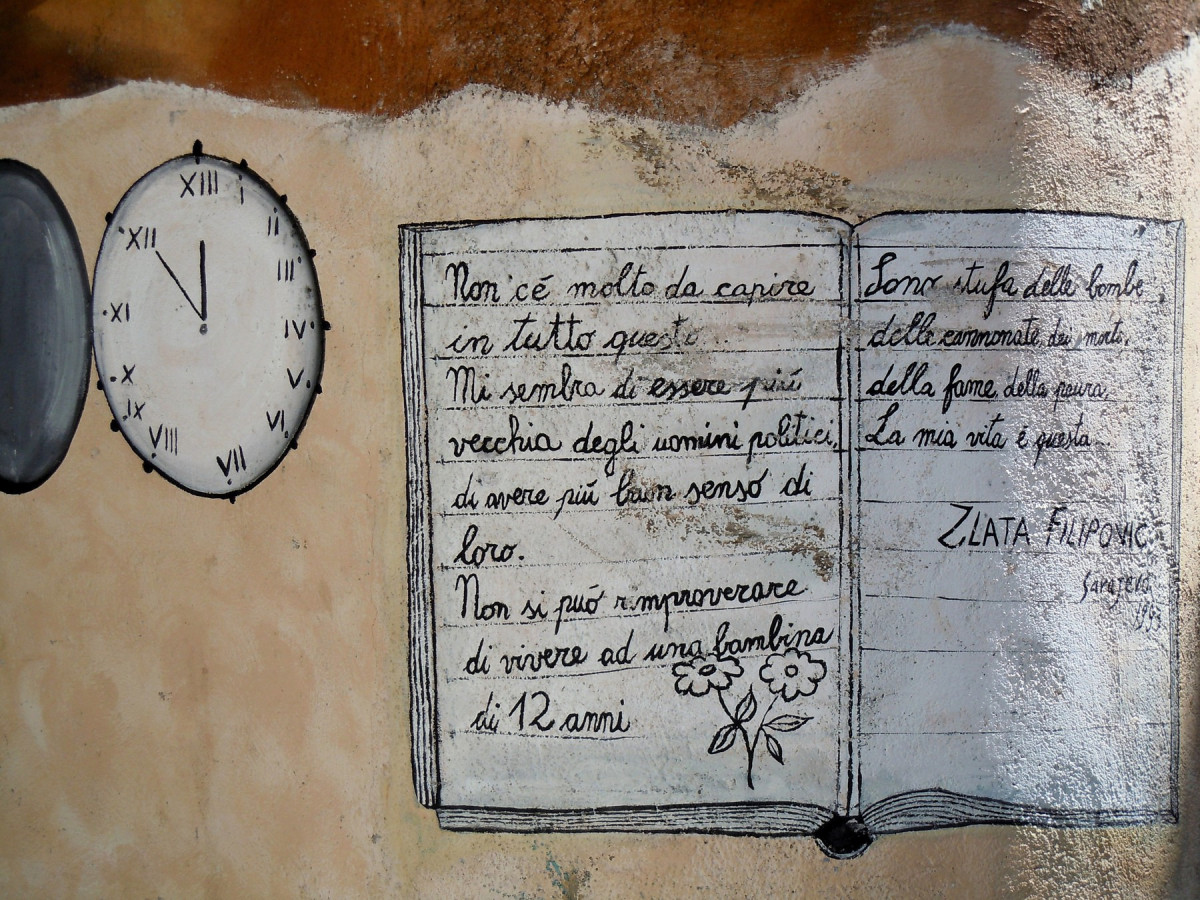 XIII
i
ii
III
IV
V
VI
VII
VIII
IX
X
XI
XII
Non c'é molto da capire
in tutto questo...
Mi sembra di essere piú
vecchia degli uomini politici,
di avere piú buon senso di
loro.
Non si puó rimproverare
di vivere ad una bambina
di 12 anni
Sono stufa delle bombe,
delle cannonate, dei morti,
della fame, della paura.
La mia vita é questa...
ZLATA FILIPOVIC
Sarajevo